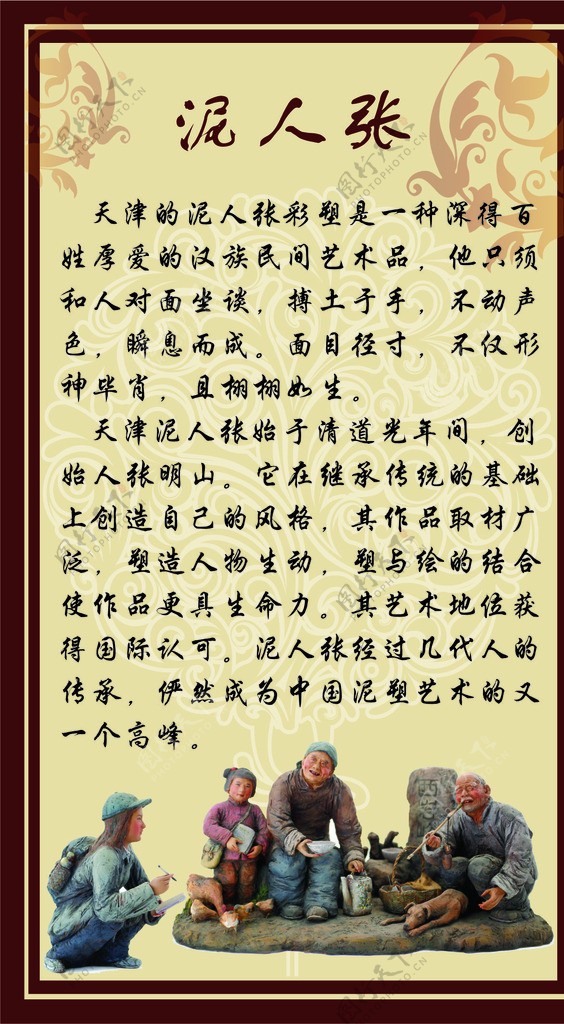 泥人张
天津的泥人张彩塑是一种深得百
姓厚爱的汉族民间艺术品，他只须
和人对面坐谈，搏土于手，不动声
色，瞬息而成。面目径寸，不仅形
神毕肖，且栩栩如生。
天津泥人张始于清道光年间，创
始人张明山。它在继承传统的基础
上创造自己的风格，其作品取材广
泛，塑造人物生动，塑与绘的结合
使作品更具生命力。其艺术地位获
得国际认可。泥人张经过几代人的
传承，俨然成为中国泥塑艺术的又
一个高峰。